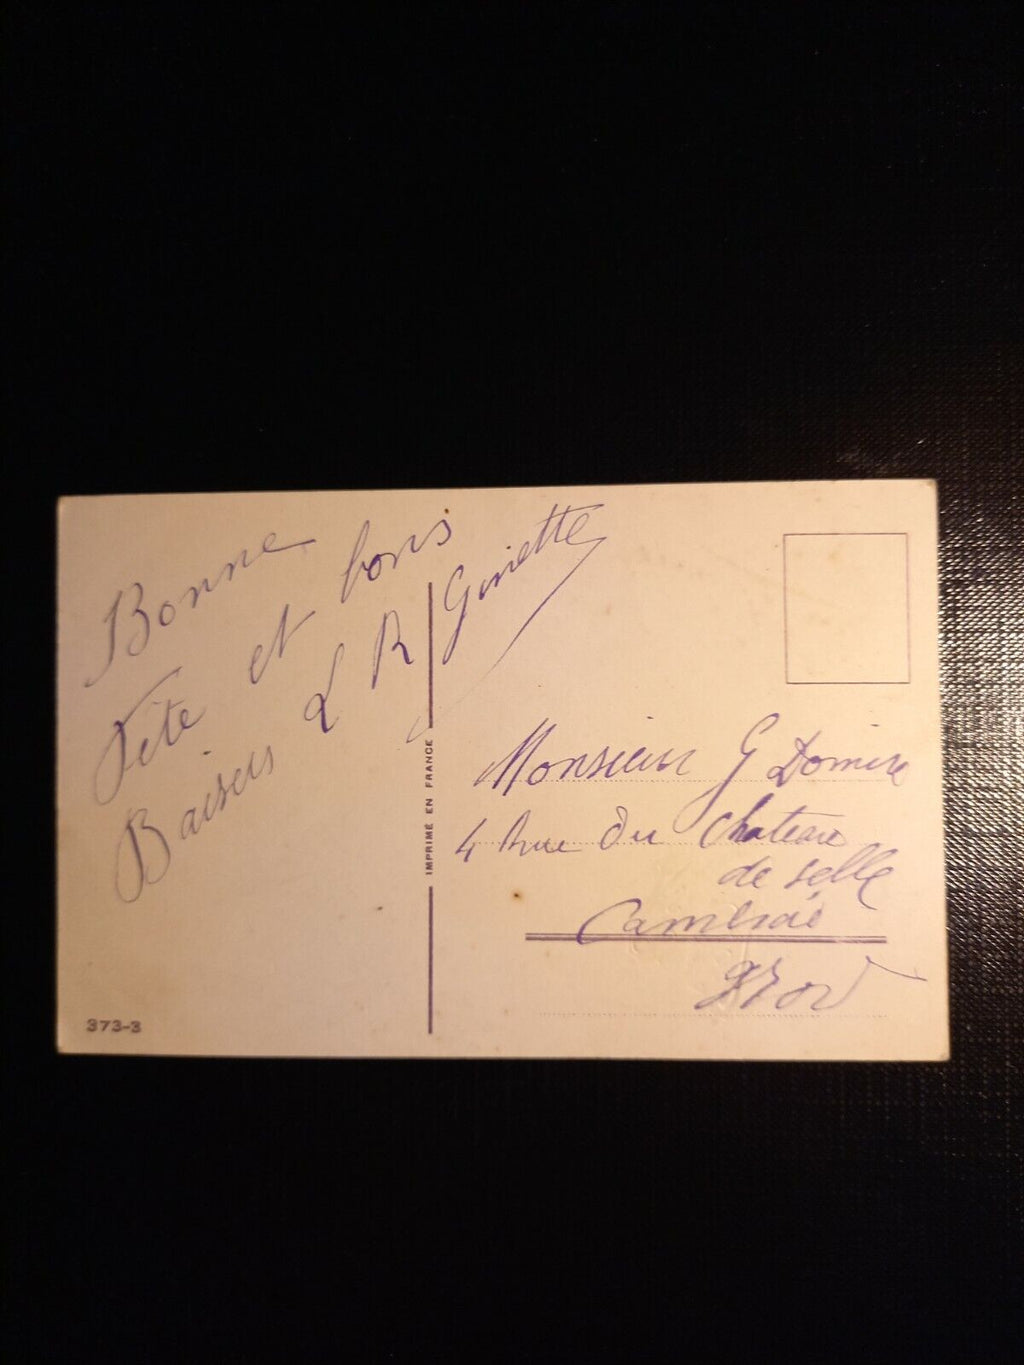 Bonne
Fête et bons
Baisers L R Ginette
IMPRIMÉ EN FRANCE
373-3
Monsieur G Domine
4 Rue du Chateau
de selle
Cambrai
Nord